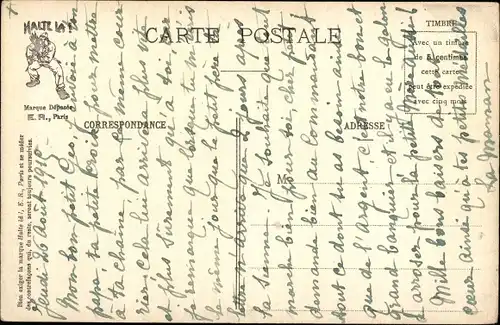 HALTE LÀ!
Marque Déposée
E. R., Paris
CARTE POSTALE
TIMBRE
Avec un timbre
de 5 centimes
cette carte
peut être expédiée
avec cinq mots
CORRESPONDANCE
ADRESSE
M
Bien exiger la marque Halte là!, E. R., Paris et se méfier
des contrefaçons qui, du reste, seront toujours poursuivies.
Jeudi 26 Août 1915
Mon bon petit Geo, j'envoie à ton
papa, ta petite croix pour mettre
à ta chaîne par le même cour
rier, cela lui arrivera plus vite
et plus sûrement qu'à toi
je remarque que lorsque tu mis
le même jour que le petit père
lettre m'arrive que 2 jours après
la sienne. Je souhaite que tout
marche bien pour toi cher petit
demande bien au Commandant
tout ce dont tu as besoin ainsi
que de l'argent c'est notre bon
Grand banquier et il a eu le galon
à arroser pour la petite Mère
Mille bons baisers de tout
cœur ainsi qu'à tes petites
ta Maman